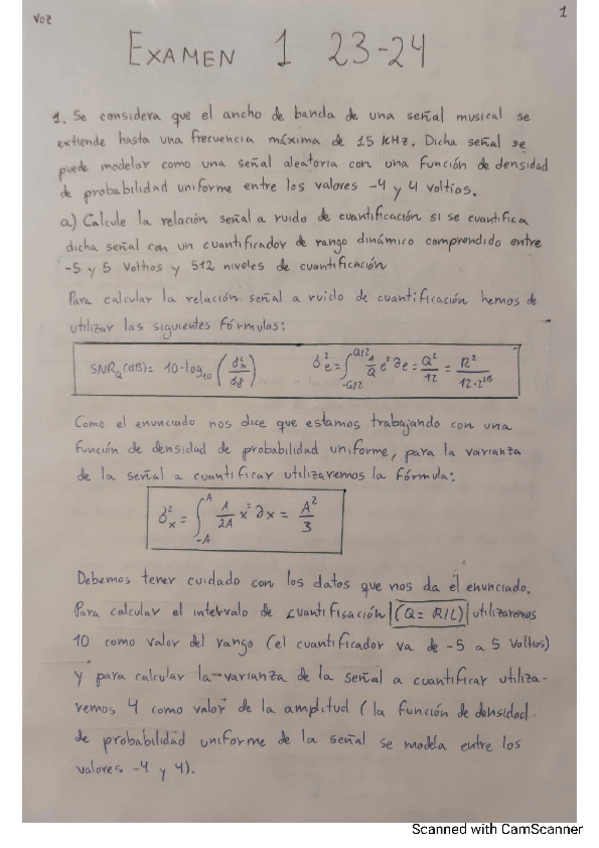 Voz
1
EXAMEN 1 23-24
1. Se considera que el ancho de banda de una señal musical se
extiende hasta una frecuencia máxima de 15 kHz. Dicha señal se
puede modelar como una señal aleatoria con una función de densidad
de probabilidad uniforme entre los valores -4 y 4 voltios.
a) Calcule la relación señal a ruido de cuantificación si se cuantifica
dicha señal con un cuantificador de rango dinámico comprendido entre
-5 y 5 Voltios y 512 niveles de cuantificación
Para calcular la relación señal a ruido de cuantificación hemos de
utilizar las siguientes fórmulas:
SNR_Q(dB)= 10·log₁₀ (σ²x/σ²e) σ²e = ∫_{-Q/2}^{Q/2} 1/Q e² ∂e = Q²/12 = R²/12·2^{2B}
Como el enunciado nos dice que estamos trabajando con una
función de densidad de probabilidad uniforme, para la varianza
de la señal a cuantificar utilizaremos la fórmula:
σ²x = ∫_{-A}^{A} 1/2A x² ∂x = A²/3
Debemos tener cuidado con los datos que nos da el enunciado.
Para calcular el intervalo de cuantificación (Q = R/L) utilizaremos
10 como valor del rango (el cuantificador va de -5 a 5 Voltios)
y para calcular la varianza de la señal a cuantificar utiliza-
remos 4 como valor de la amplitud (la función de densidad
de probabilidad uniforme de la señal se modela entre los
valores -4 y 4).
Scanned with CamScanner